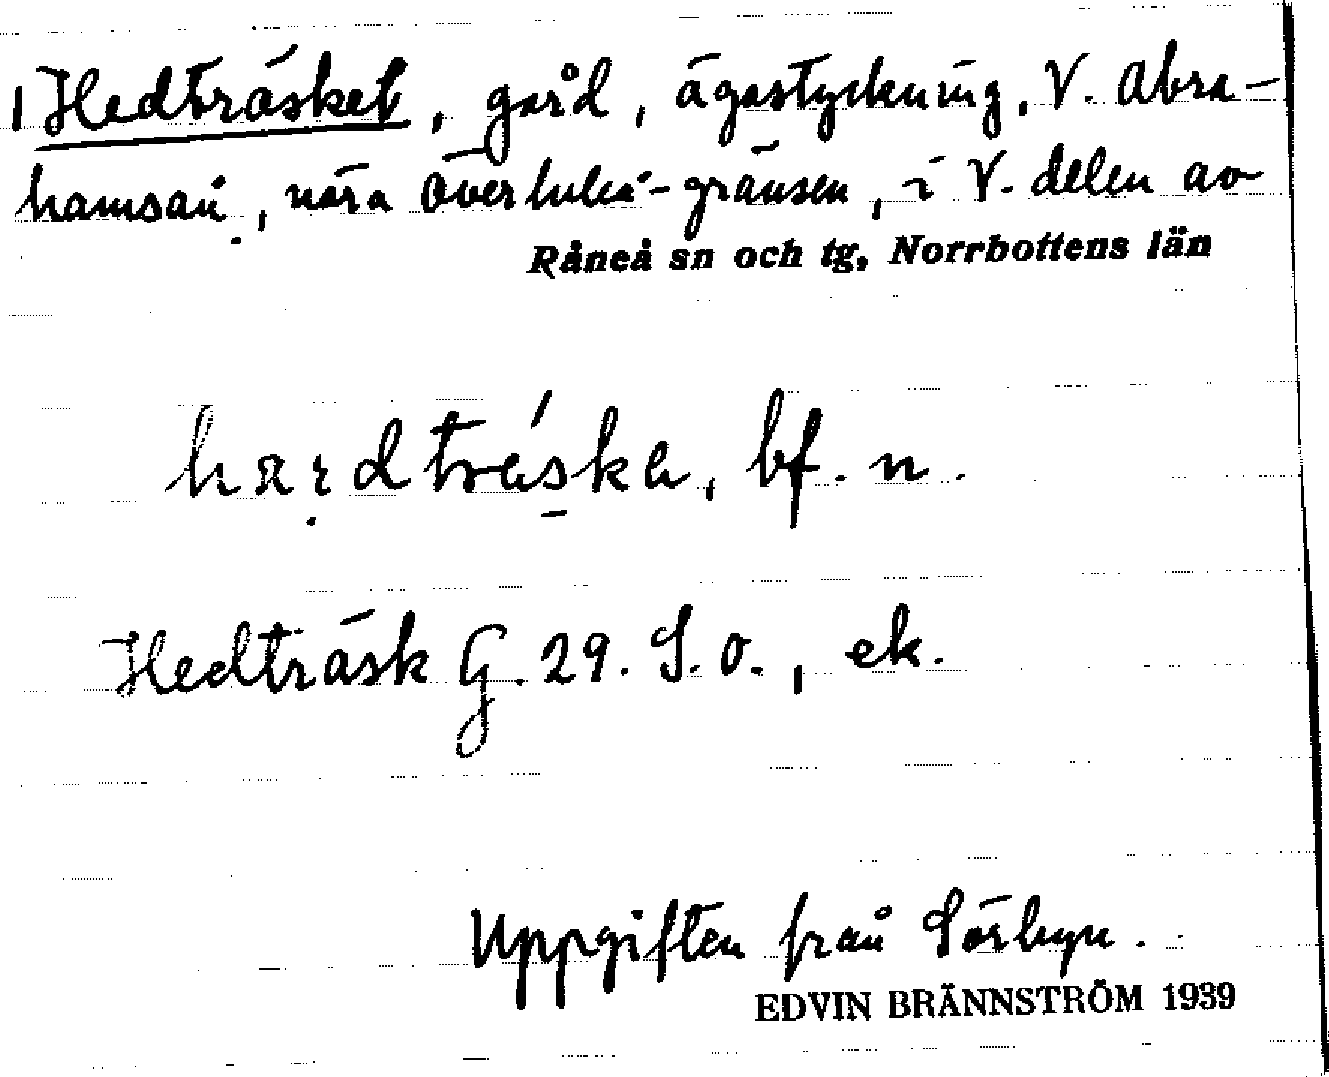 1 Hedträsket, gård, ägostyckning, V. Abra-
hamsån, nära Överluleå-gränsen, i V. delen av
Råneå sn och tg, Norrbottens län
bf. n.
Hedträsk G. 29. S. o., ek.
Uppgiften från Sörbyn.
EDVIN BRÄNNSTRÖM 1939